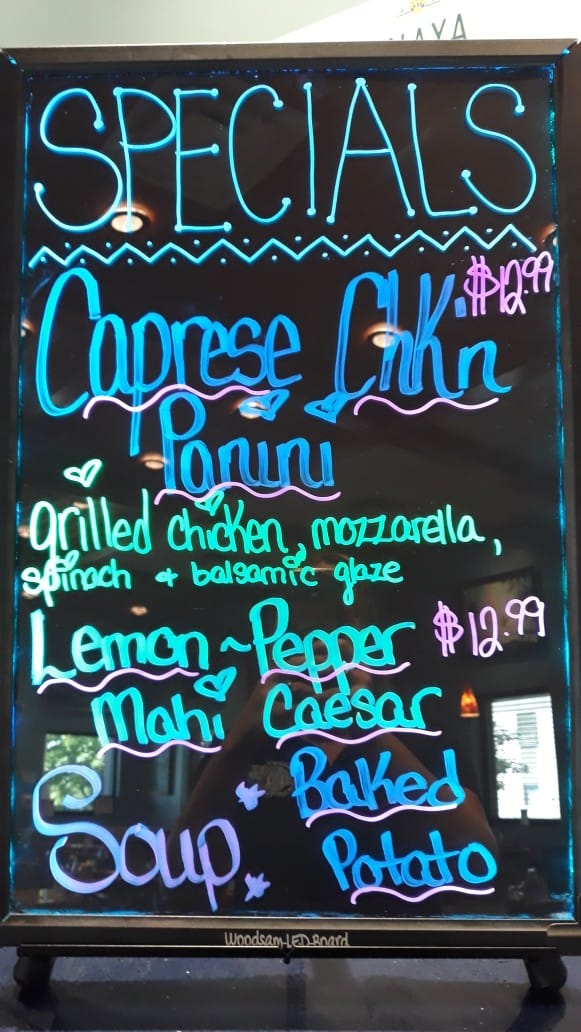 SPECIALS
Caprese Chkn $12.99
Panini
grilled chicken, mozzarella,
spinach + balsamic glaze
Lemon~Pepper $12.99
Mahi Caesar
Soup Baked
Potato
Woodsam-LED-Board